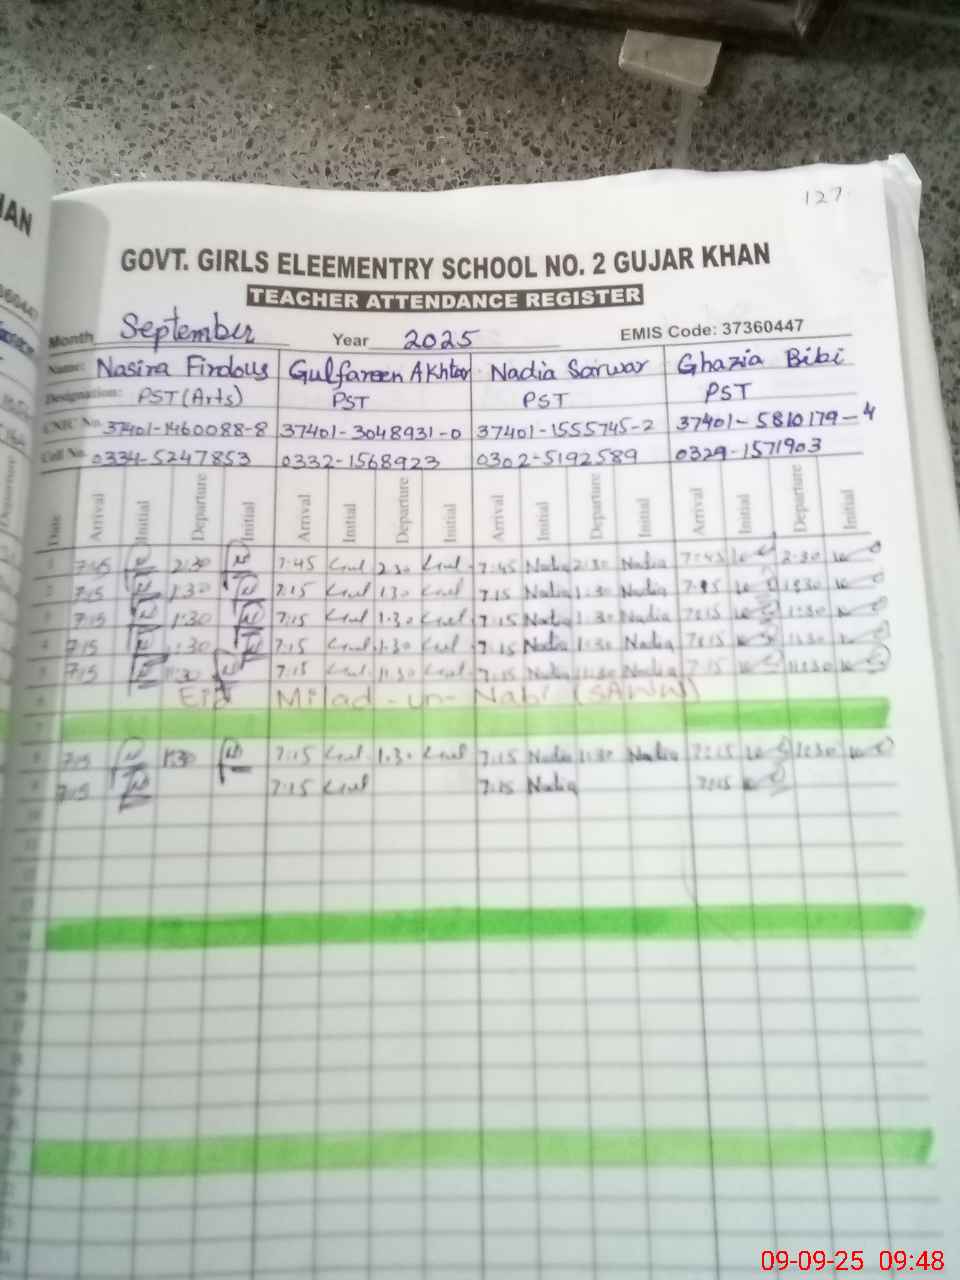 127
GOVT. GIRLS ELEEMENTRY SCHOOL NO. 2 GUJAR KHAN
TEACHER ATTENDANCE REGISTER
Month September Year 2025 EMIS Code: 37360447
Name: Nasira Firdous Gulfareen Akhtar Nadia Sarwar Ghazia Bibi
Designation: PST (Arts) PST PST PST
CNIC No. 37401-1460088-8 37401-3048931-0 37401-1555745-2 37401-5810179-4
Cell No. 0334-5247853 0332-1568923 0302-5192589 0329-1571903
Date Arrival Initial Departure Initial Arrival Initial Departure Initial Arrival Initial Departure Initial Arrival Initial Departure Initial
1 7:45 2:30 7:45 Gul 2:30 Gul 7:45 Nadia 2:30 Nadia 7:45 2:30
2 7:15 1:30 7:15 Gul 1:30 Gul 7:15 Nadia 1:30 Nadia 7:15 1:30
3 7:15 1:30 7:15 Gul 1:30 Gul 7:15 Nadia 1:30 Nadia 7:15 1:30
4 7:15 1:30 7:15 Gul 1:30 Gul 7:15 Nadia 1:30 Nadia 7:15 1:30
5 7:15 11:30 7:15 Gul 11:30 Gul 7:15 Nadia 11:30 Nadia 7:15 11:30
6 Eid Milad-un-Nabi (SAWW)
7
8 7:15 1:30 7:15 Gul 1:30 Gul 7:15 Nadia 1:30 Nadia 7:15 1:30
9 7:15 7:15 Gul 7:15 Nadia 7:15
10
11
09-09-25 09:48